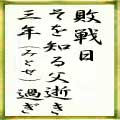 敗戦日
そを知る父逝き
三年（みとせ）過ぎ